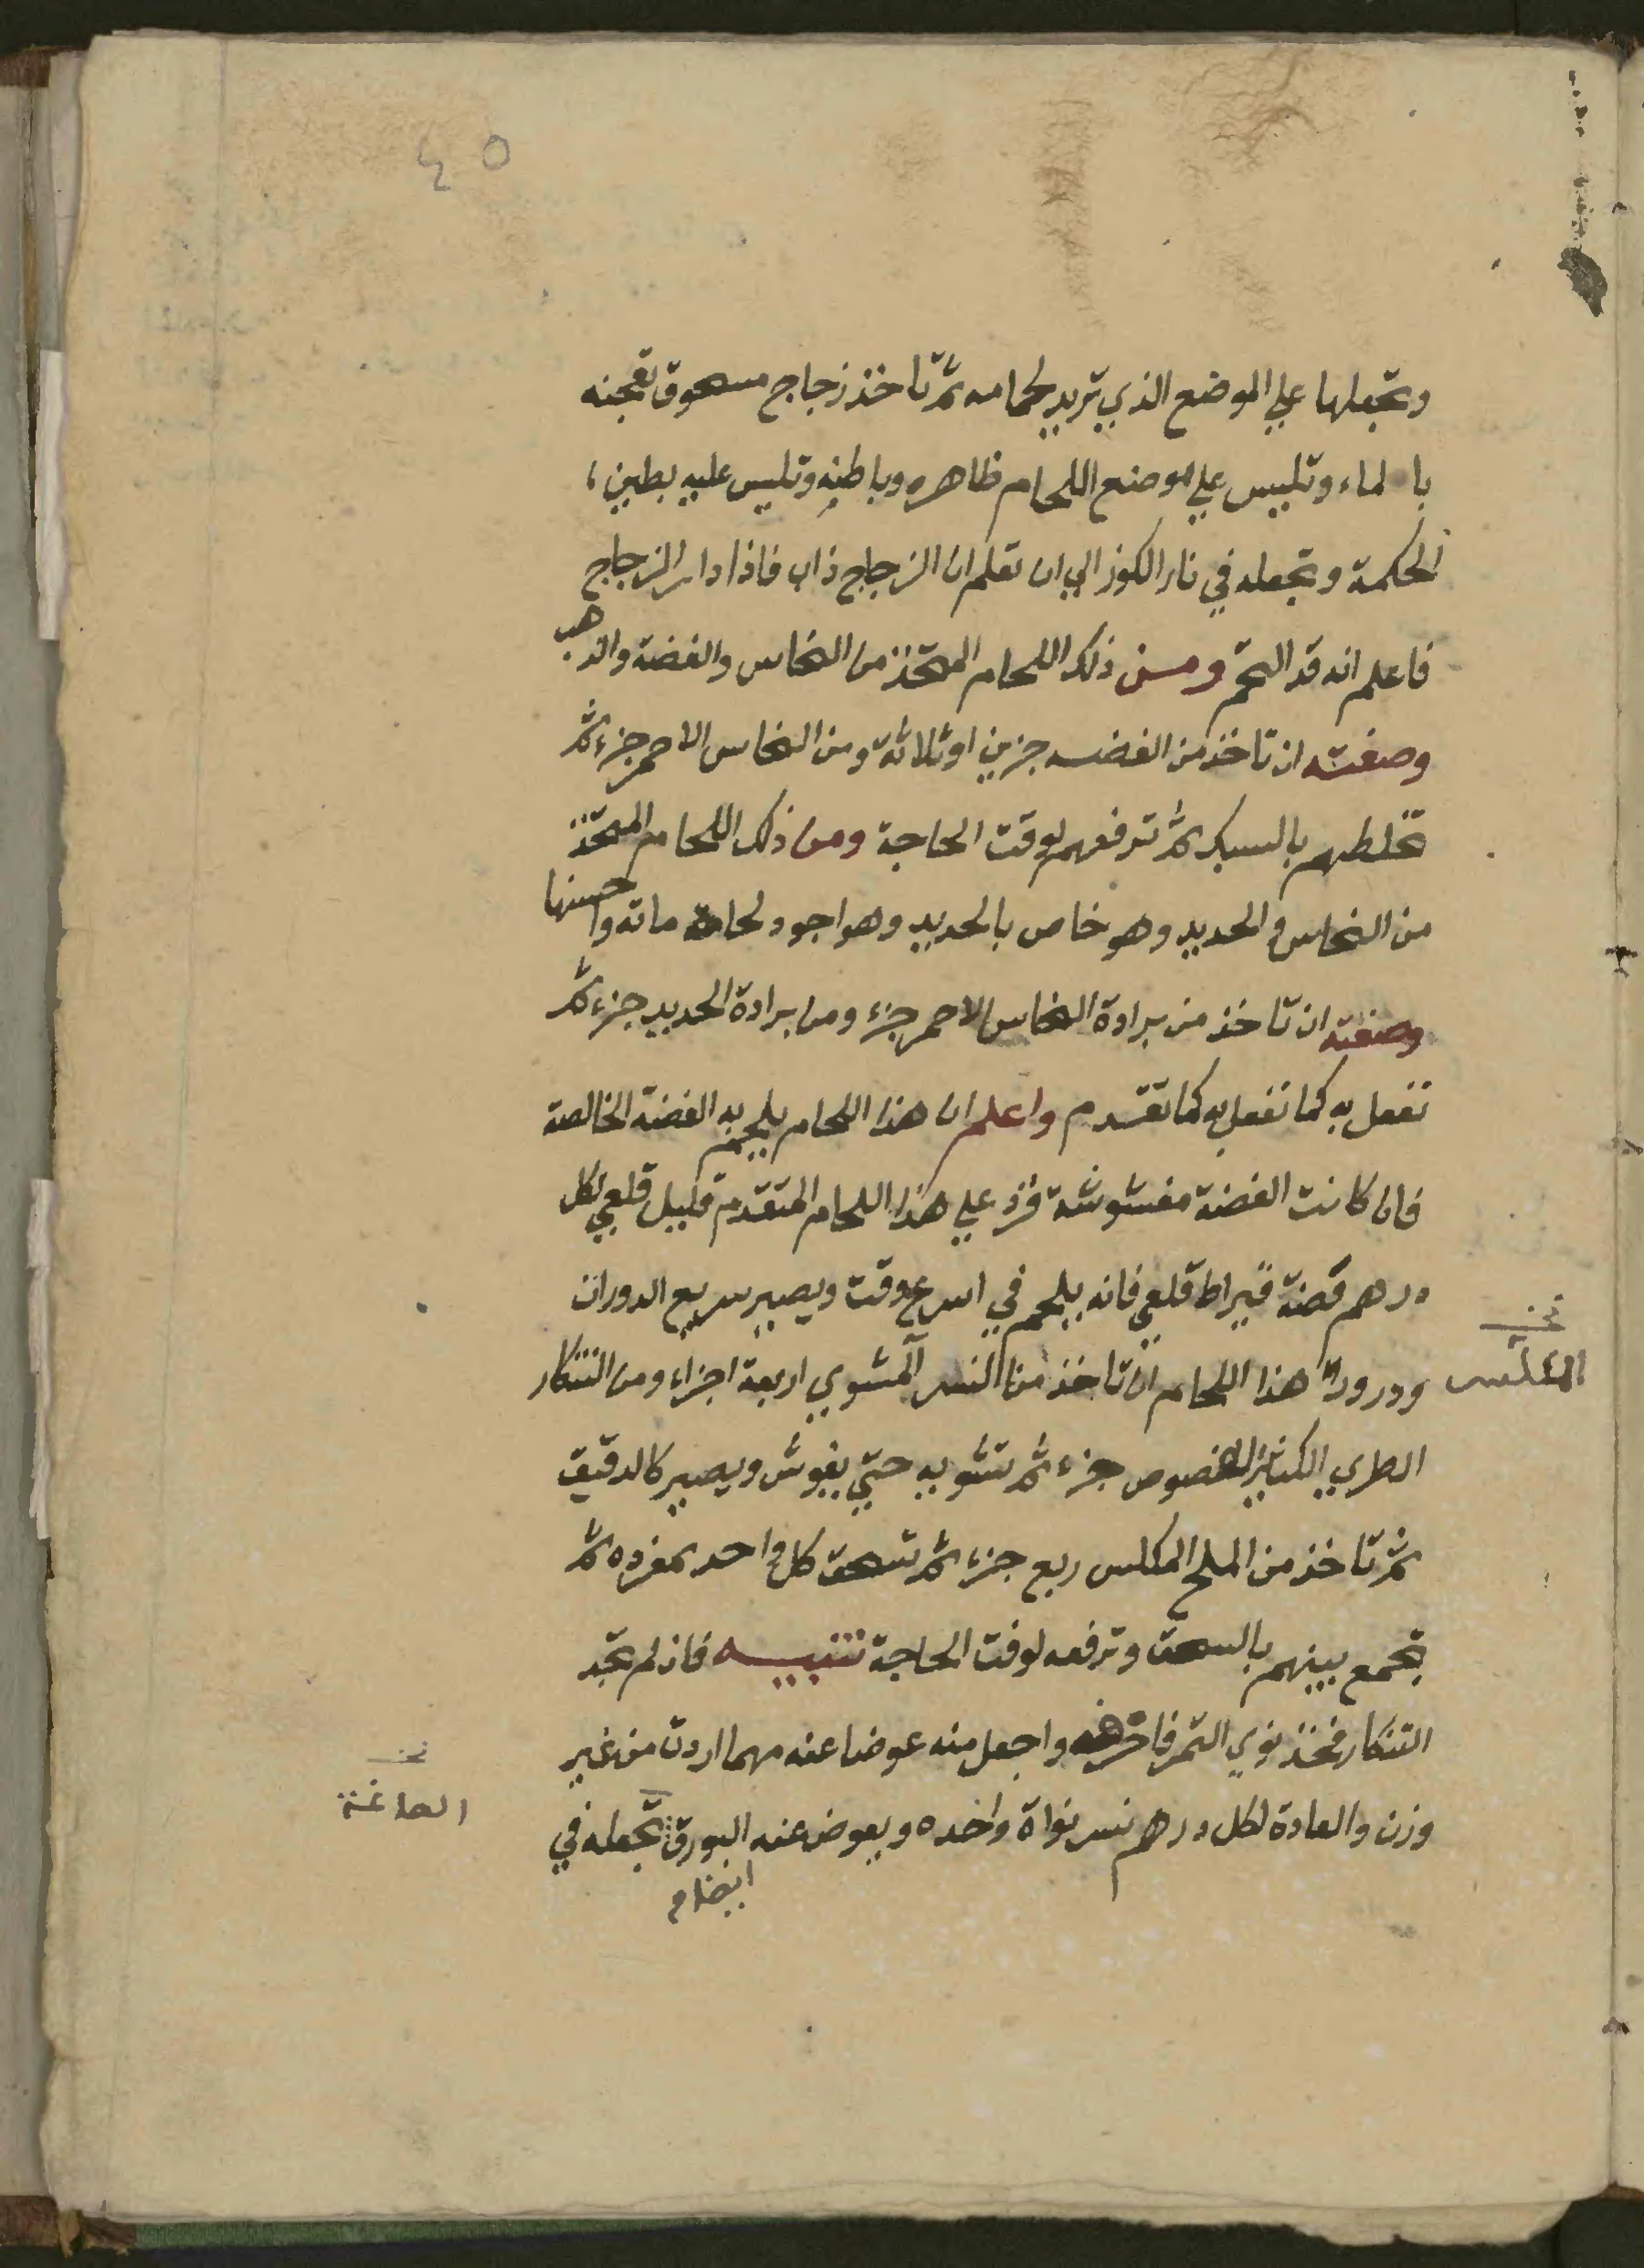 ٤٥
وتجعلها علي الموضع الذي تريد لحامه ثم تاخذ زجاج مسحوق تعجنه
بالماء وتلبيس علي موضع اللحام ظاهره وباطنه وتلبس عليه بطين
الحكمة وتجعله في نار الكوز الي ان تعلم ان الزجاج ذاب فاذا دار الزجاج
فاعلم انه قد التحم ومن ذلك اللحام المتخذ من النحاس والفضة والذهب
وصفته ان تاخذ من الفضه جزين او ثلاثة ومن النحاس الاحمر جزء ثم
تخلطهم بالسبك ثم ترفعهم لوقت الحاجة ومن ذلك اللحام المتخذ
من النحاس والحديد وهو خاص بالحديد وهو اجود لحاماته واحسنها
وصفته ان تاخذ من برادة النحاس الاحمر جزء ومن برادة الحديد جزء ثم
تفعل به كما تفعل به كما تقدم واعلم ان هذا اللحام يلحم به الفضة الخالصة
فان كانت الفضة مغشوشة فزد علي هذا اللحام المتقدم قليل قلعي لكل
درهم فضة قيراط قلعي فانه يلحم في اسرع وقت ويصير سريع الدوران
ودرور هذا اللحام ان تاخذ من النسر المشوي اربعة اجزاء ومن التنكار
نخـ
المكلس
الطري الكثير الفصوص جزء ثم تشويه حتي يفوش ويصير كالدقيق
ثم تاخذ من الملح المكلس ربع جزء ثم تسحق كل واحد بمفرده ثم
تجمع بينهم بالسحق وترفعه لوقت الحاجة تنبيه فان لم تجد
التنكار فخذ نوي التمر فاحرقه واجعل منه عوضا عنه مهما اردت من غير
نخـ
الصاغة
وزن والعادة لكل درهم نسر نواة واحده ويعوض عنه البورق تجعله في
ايضا م